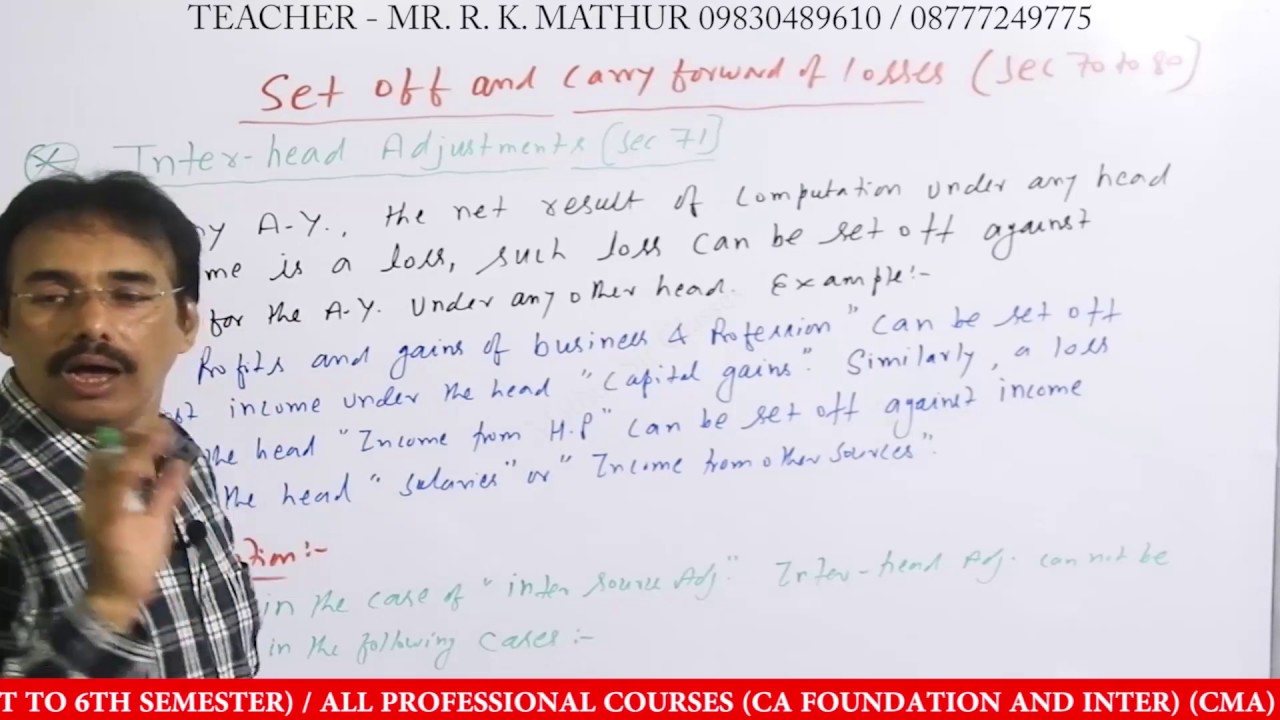 TEACHER - MR. R. K. MATHUR 09830489610 / 08777249775
Set off and Carry forward of losses (Sec 70 to 80)
Inter-head Adjustments (Sec 71)
ny A-Y., the net result of Computation under any head
me is a loss, such loss can be set off against
for the A.Y. under any other head. Example:-
Profits and gains of business & Profession" can be set off
st income under the head "Capital gains". Similarly, a loss
the head "Income from H.P" can be set off against income
the head "Salaries" or "Income from other sources".
tion:-
in the case of "inter source Adj." Inter-head Adj. can not be
in the following cases:-
T TO 6TH SEMESTER) / ALL PROFESSIONAL COURSES (CA FOUNDATION AND INTER) (CMA)